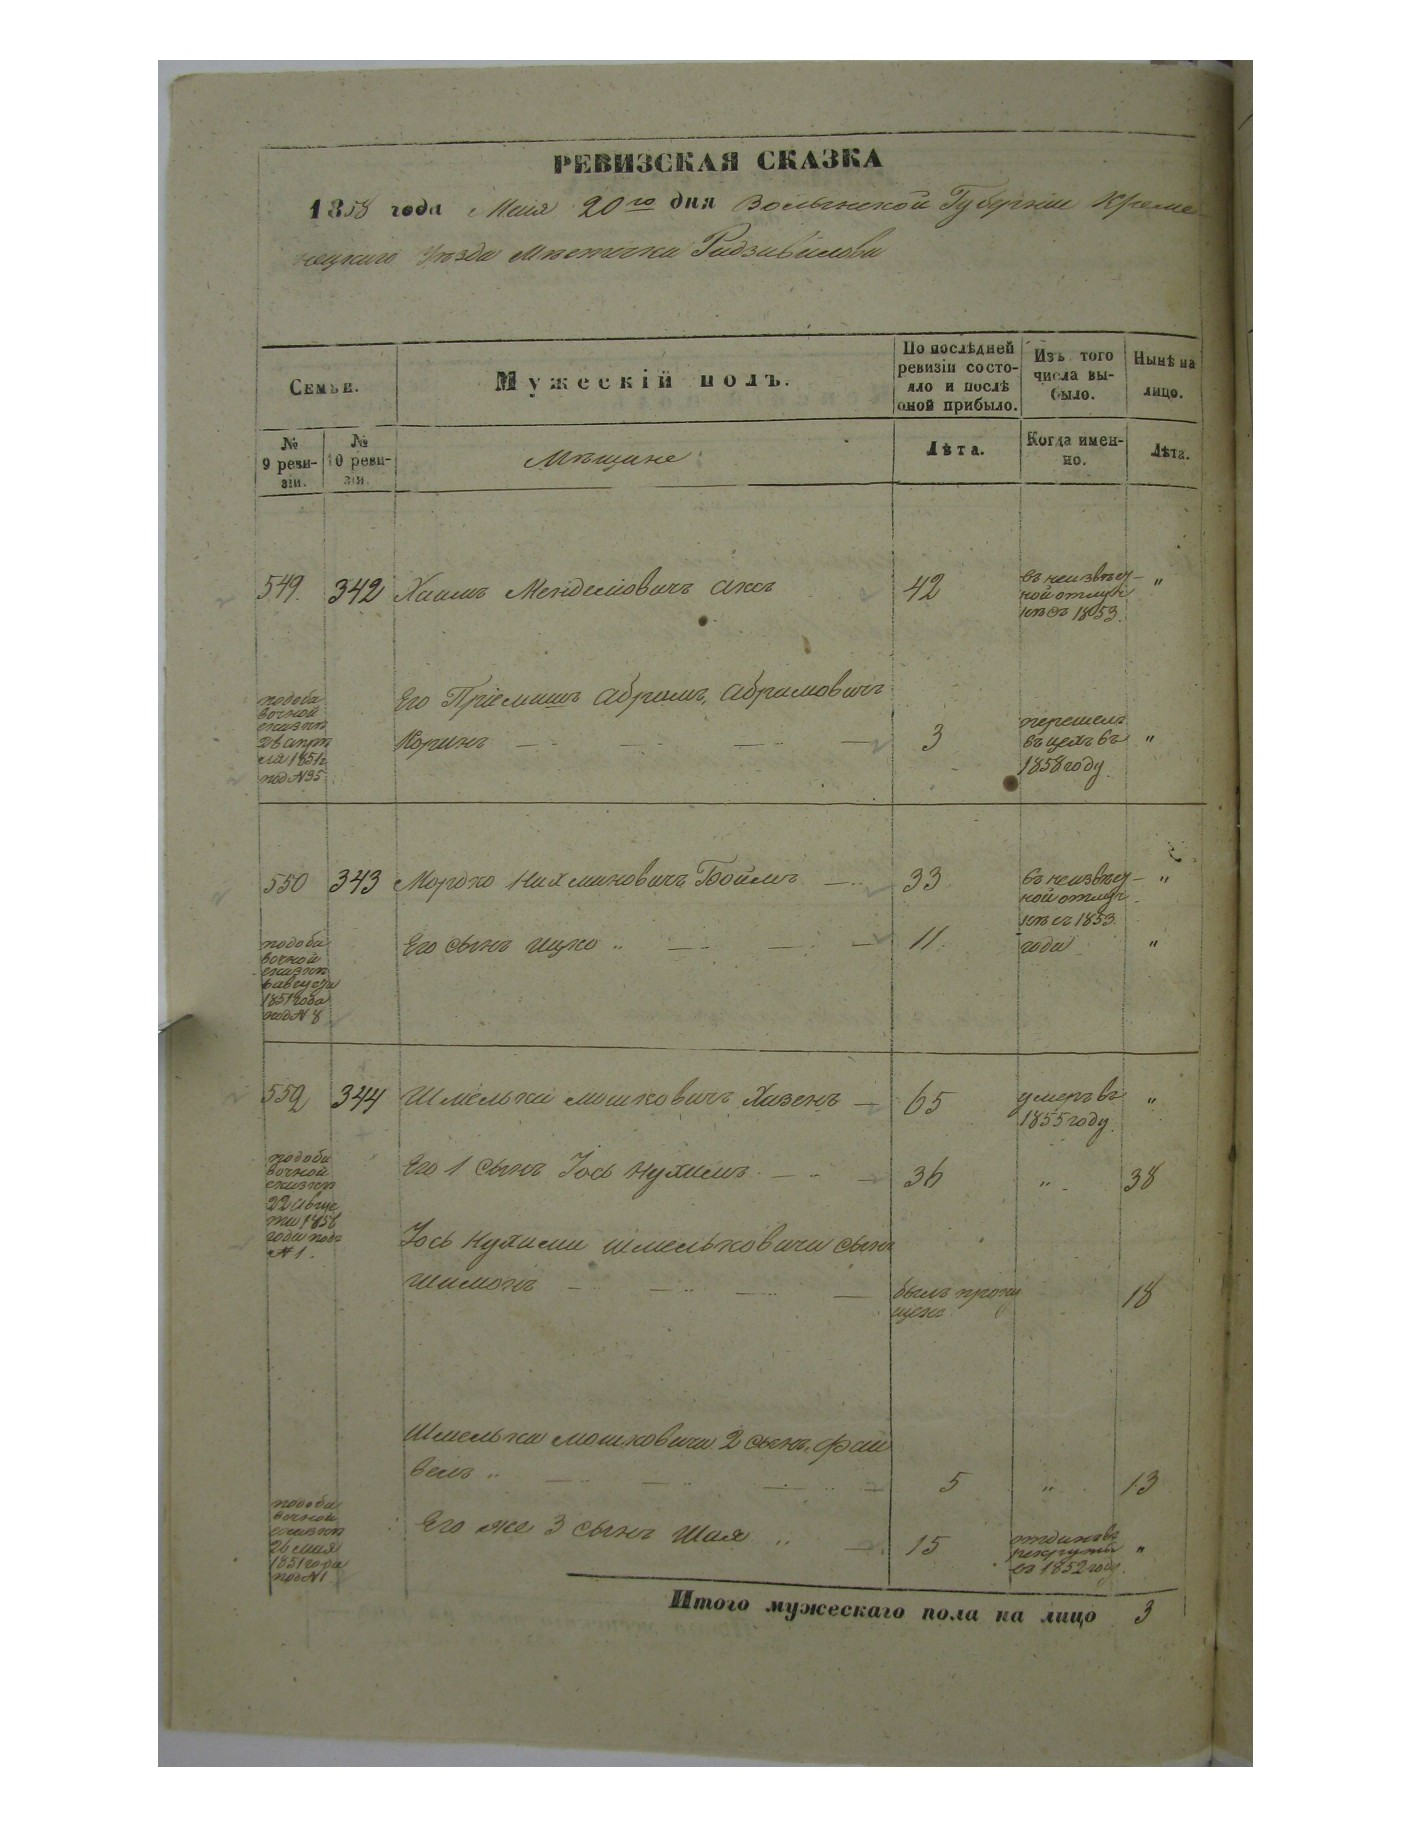 РЕВИЗСКАЯ СКАЗКА
1858 года Мая 20го дня Волынской Губерніи Креме-
нецкаго Уѣзда Мѣстечка Радзивилова
Семьи.
Мужескій полъ.
По послѣдней
ревизіи состо-
яло и послѣ
оной прибыло.
Изъ того
числа вы-
было.
Нынѣ на
лицо.
№
9 реви-
зіи.
№
10 реви-
зіи.
Мѣщане
Лѣта.
Когда имен-
но.
Лѣта.
549. 342 Хаимъ Менделіовичъ 42 "
въ неизвѣст-
ной отлуч-
кѣ съ 1853.
подоба
вочной
сказки
28 апрѣ
ля 1851г
под № 35
Его Пріемышъ Абрамъ Абрамовичъ
Коринъ 3 "
перешелъ
въ цехъ въ
1858 году
550 343 Мордко Нахмановичъ Боймъ 33 "
въ неизвѣст-
ной отлуч-
кѣ съ 1853.
года
подоба
вочной
сказки
6 августа
1851 года
под № 8
Его сынъ Ицко " 11. "
552 344 Шмелька Мошковичъ Хазенъ 65 "
умеръ въ
1855 году.
подоба
вочной
сказки
22 Авгус
та 1858
года подъ
№ 1.
Его 1 сынъ Іось Нухимъ 36 " 38
Іось Нухима Шмельковича сынъ
Шимонъ 18
былъ пропу
щенъ
Шмельки Мошковича 2 сынъ Фай
вель " 5 " 13
подоба
вочной
сказки
26 мая
1851 года
под № 1
Его же 3 сынъ Шая " 15 "
отданъ въ
рекруты
въ 1852 году.
Итого мужескаго пола на лицо 3